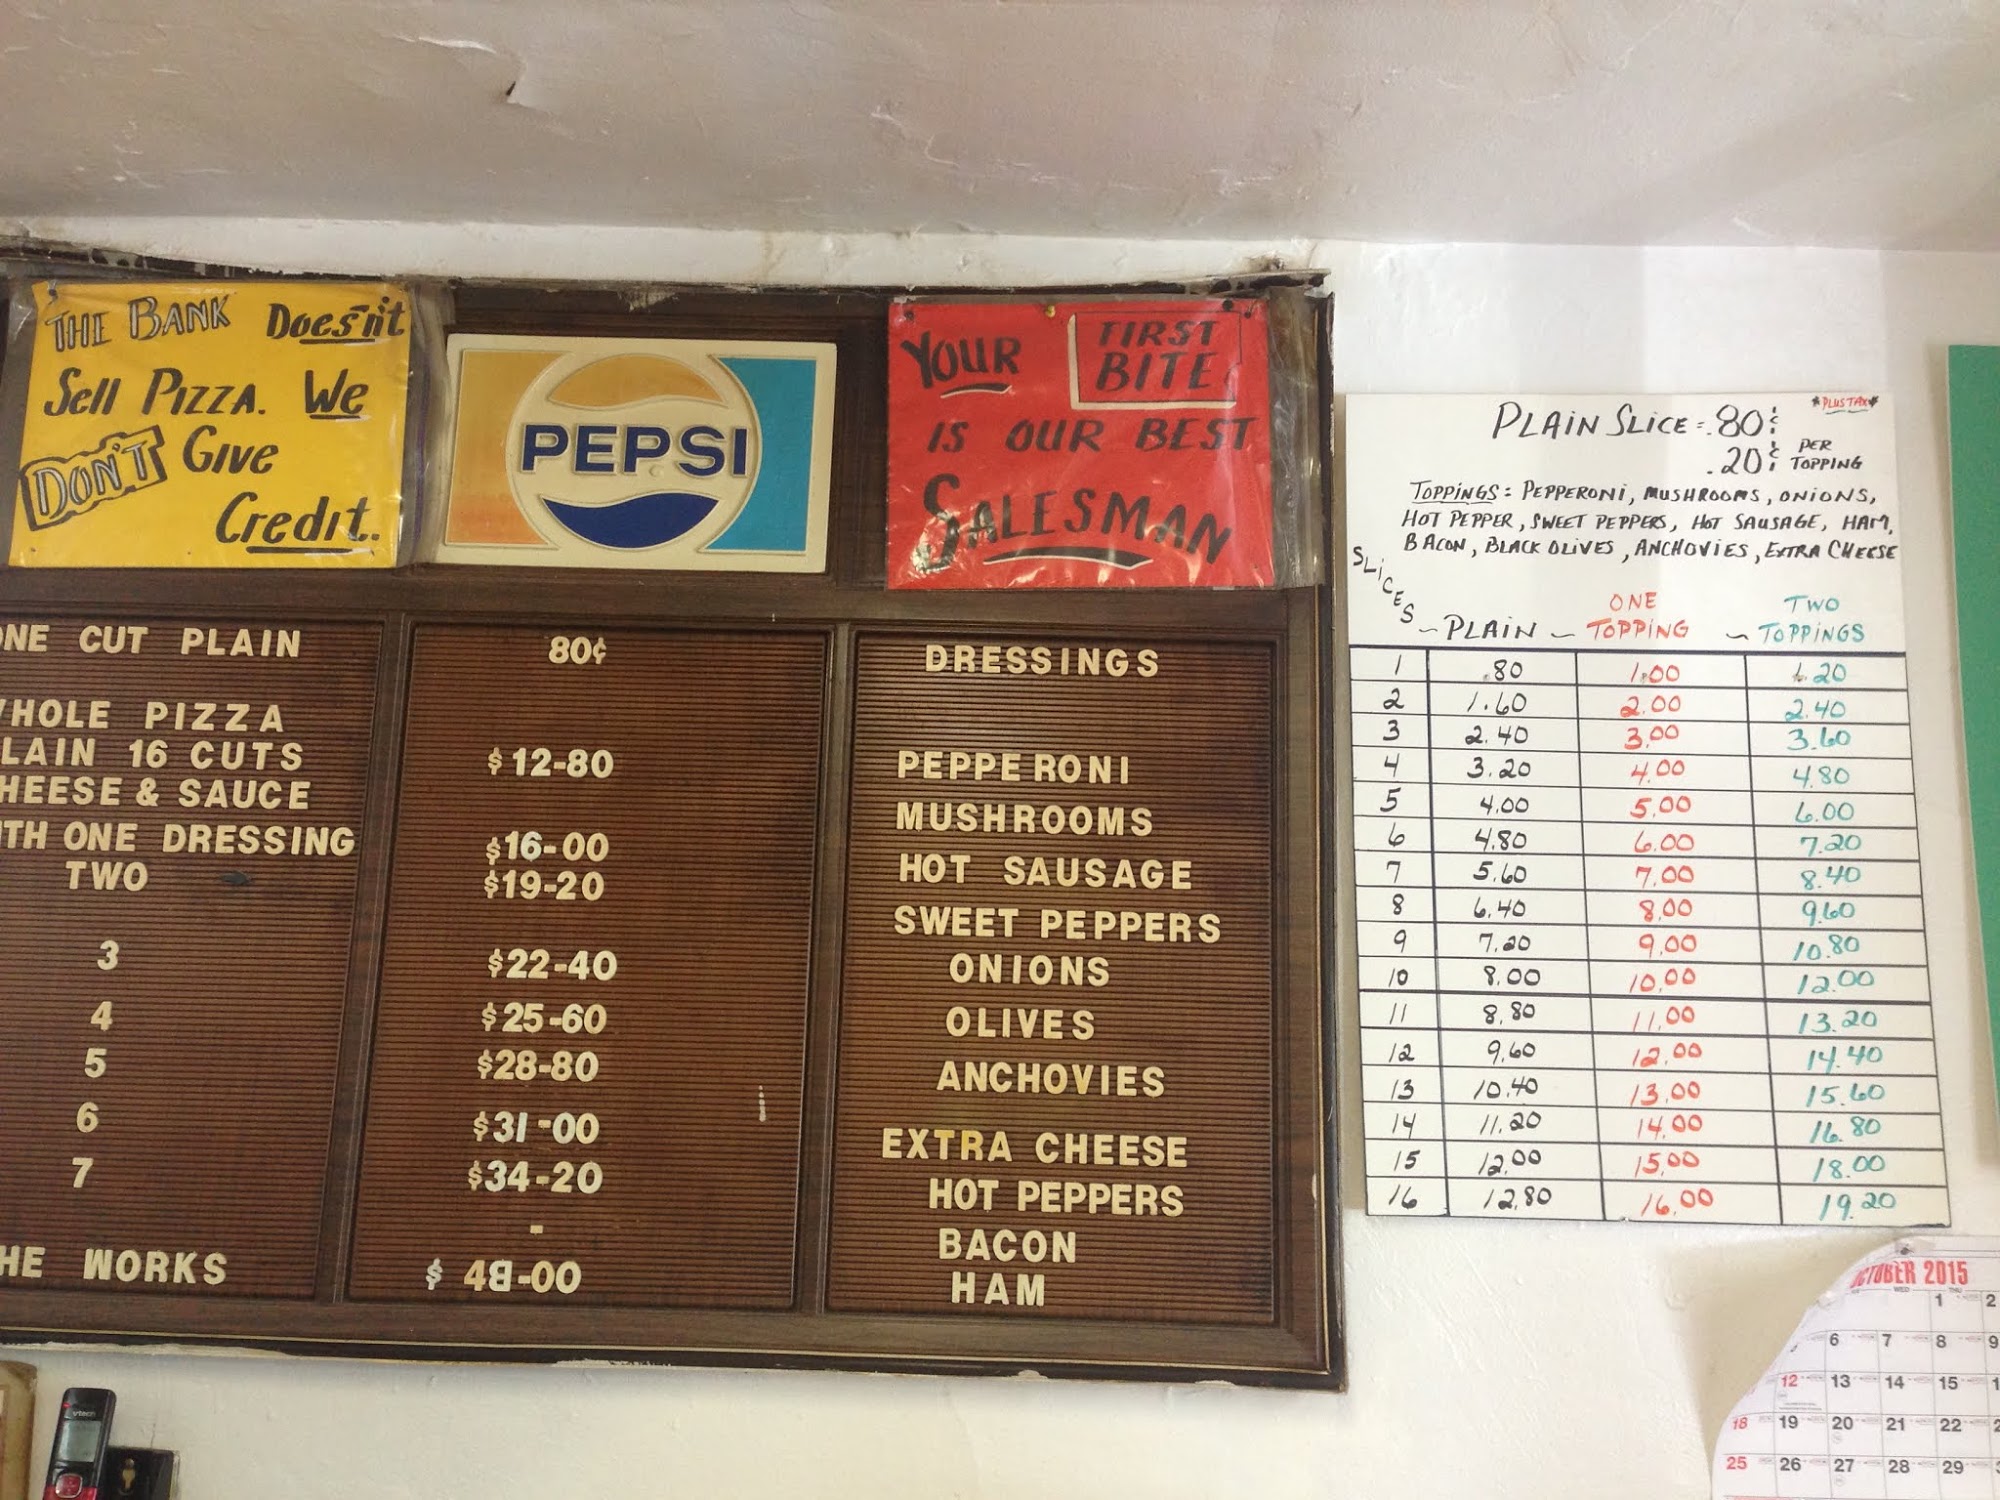 THE BANK Doesn't
Sell PIZZA. We
DON'T Give
Credit.
PEPSI
YOUR FIRST BITE
IS OUR BEST
SALESMAN
CUT PLAIN
80¢
PIZZA
16 CUTS
$12-80
& SAUCE
ONE DRESSING
$16-00
TWO
$19-20
3
$22-40
4
$25-60
5
$28-80
6
$31-00
7
$34-20
-
WORKS
$ 48-00
DRESSINGS
PEPPERONI
MUSHROOMS
HOT SAUSAGE
SWEET PEPPERS
ONIONS
OLIVES
ANCHOVIES
EXTRA CHEESE
HOT PEPPERS
BACON
HAM
*PLUS TAX*
PLAIN SLICE = .80¢
.20¢ PER TOPPING
TOPPINGS: PEPPERONI, MUSHROOMS, ONIONS,
HOT PEPPER, SWEET PEPPERS, HOT SAUSAGE, HAM,
BACON, BLACK OLIVES, ANCHOVIES, EXTRA CHEESE
SLICES ~ PLAIN ~ ONE TOPPING ~ TWO TOPPINGS
1 .80 1.00 1.20
2 1.60 2.00 2.40
3 2.40 3.00 3.60
4 3.20 4.00 4.80
5 4.00 5.00 6.00
6 4.80 6.00 7.20
7 5.60 7.00 8.40
8 6.40 8.00 9.60
9 7.20 9.00 10.80
10 8.00 10.00 12.00
11 8.80 11.00 13.20
12 9.60 12.00 14.40
13 10.40 13.00 15.60
14 11.20 14.00 16.80
15 12.00 15.00 18.00
16 12.80 16.00 19.20
OCTOBER 2015
WED THU
1 2
6 7 8 9
12 13 14 15
18 19 20 21 22
25 26 27 28 29
vtech